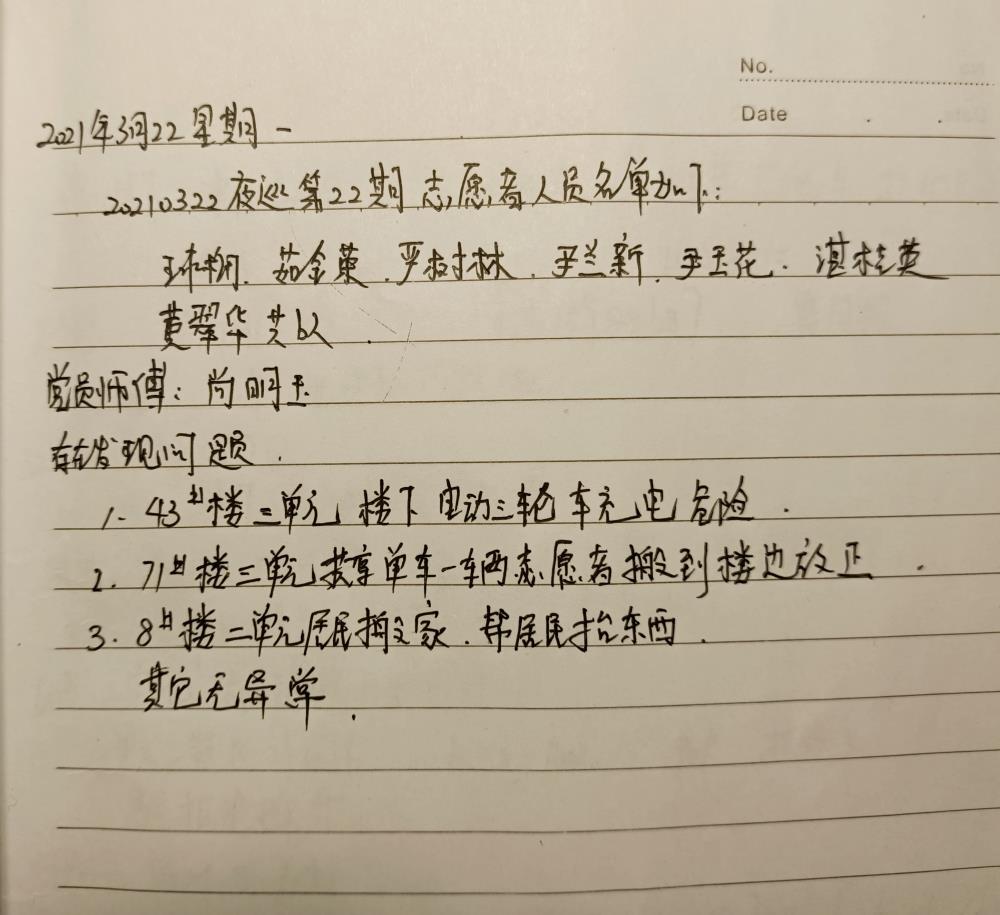 No.
Date
2021年3月22星期一
20210322夜巡第22期志愿者人员名单如下:
茹金荣.严树林.尹兰新.尹玉花.湛桂英
黄翠华共6人.
党员师傅:尚明玉
存在发现问题.
1.43#楼三单元楼下电动三轮车充电危险.
2.71#楼三单元共享单车一车两志愿者搬到楼边放正.
3.8#楼二单元居民搬家.帮居民抬东西.
其它无异常.